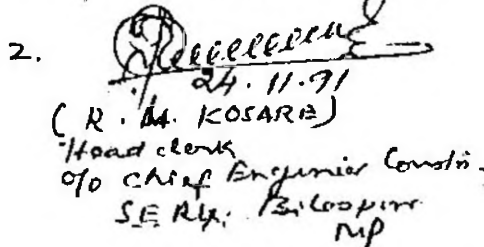 2.
24.11.91
(R. M. KOSARE)
Head clerk
O/o Chief Enginier Constn.
S E Rly. Bilaspur
MP